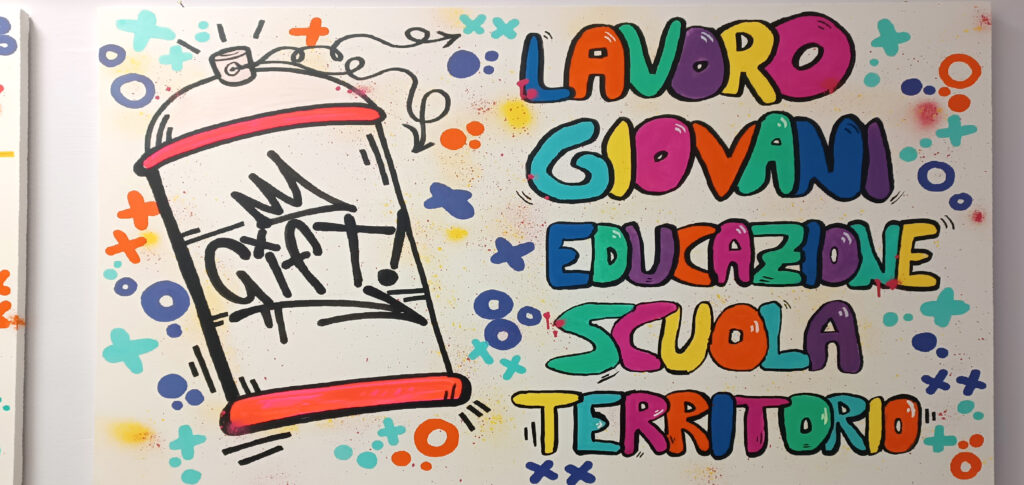 Gift!
LAVORO
GIOVANI
EDUCAZIONE
SCUOLA
TERRITORIO